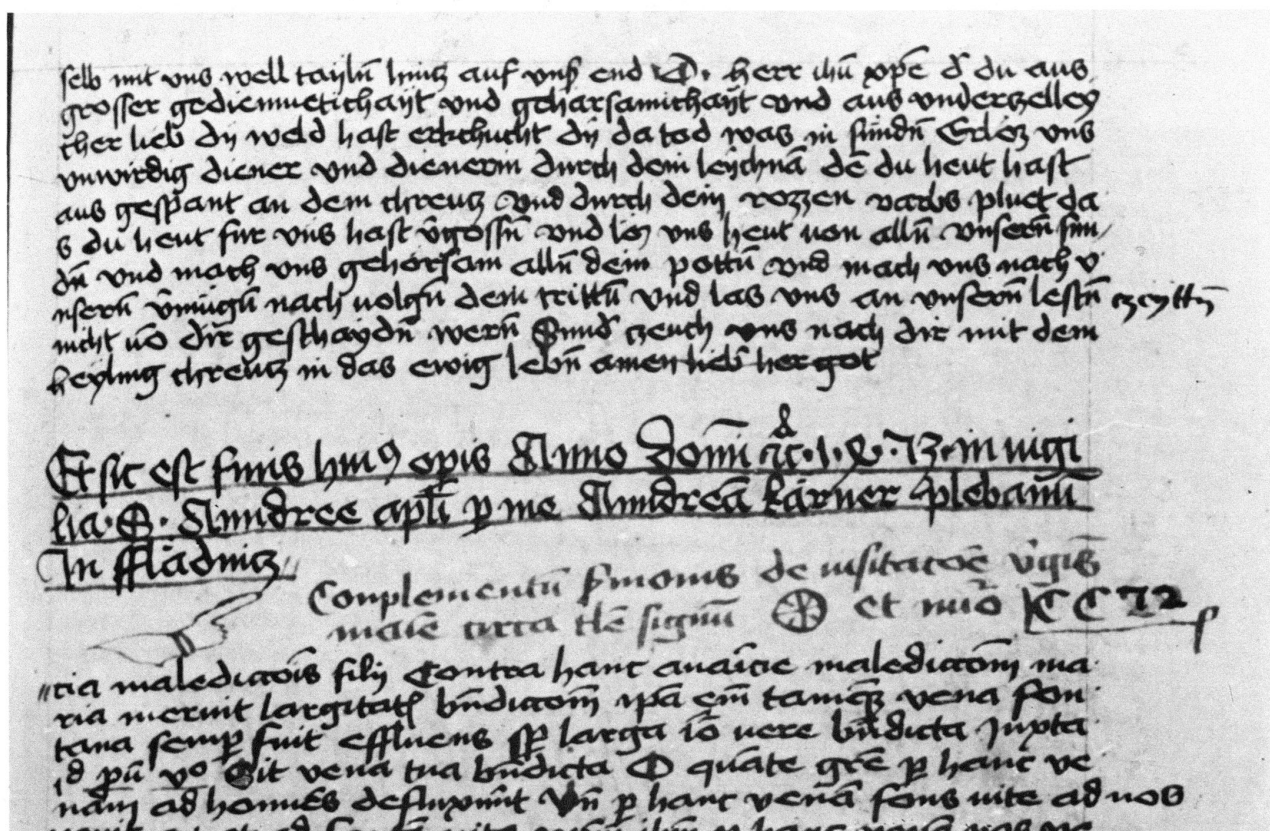 selb mit vns well tayln̄ hintz auf vnsß end O. herr ihū xp̄e d̄ du aus
grosser gediemuetichayt vnd gehorsamichayt vnd aus vnderzelley
cher lieb dy weld hast erkchucht dy da tod was in sündn̄ Erlez vns
vnwirdig diener vnd dienerin durch dein leychnā dē du heut hast
aus gespant an dem chreutz vnd durch dein rozzen varbs pluet da
s du heut fur vns hast v̄gossn̄ vnd löz vns heut von alln̄ vnsern̄ sün/
dn̄ vnd mach vns gehorsam alln̄ dein pottn̄ vnd mach vns nach v
nsern̄ v̄mügn̄ nach uolgn̄ dein trittn̄ vnd las vns an vnsern̄ lestn̄ czeyttn̄
nicht uō dir geschaydn̄ wern̄ Sund̄ czeuch vns nach dir mit dem
heyling chreutz in das ewig lebn̄ amen lieb̄ her got
Et sic est finis huiꝰ op̄is Anno Domī in vigi
lia S. Anndree apl̄i ꝑ me Anndreā kärner plebanū
In fflädnitz
Conplementū s̄monis de visitacōe v̄gis
marie circa tl̄e signū et nūo CC72
cia maledictōis filij Contra hanc auaricie maledictōm̄ ma
ria meruit largitatꝭ bn̄dictōm̄ ip̄a em̄ tamqꝫ vena fon
tana semꝑ fuit effluens sꝑ larga iō vere bn̄dicta Juxta
id ꝓu̅ vo Sit vena tua bn̄dicta O quāte grē ꝑ hanc ve
nam ad homīes defluxūnt Vn̄ ꝑ hanc venā fons uite ad nos